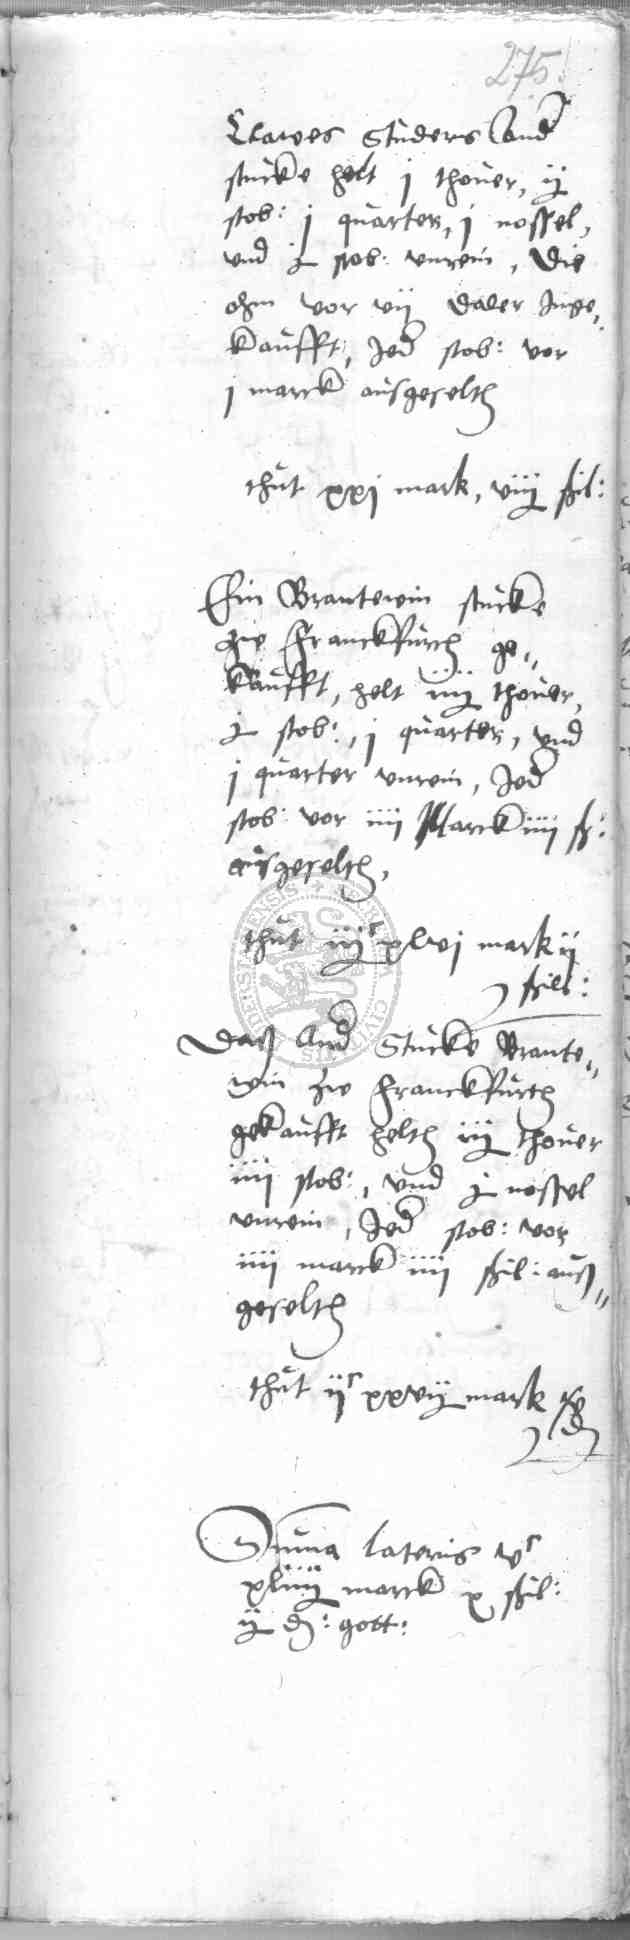 275.
Clawes Studers Land
stucke helt j thover, ij
stob: j quarter, j nossel,
und j stob: unrein, die
ohm vor vij daler Inge,
kaufft, Jed stob: vor
j marck ausgeselth
thut xxj mark, viij ßil:
Ein Brantewin stucke
zue Franckfurth ge„
kaufft, helt iiij thover,
j stob:, j quarter, und
j quarter unrein, Jed
stob: vor iiij Marck iiij ß:
ausgeselth,
thut iijc xlvj mark ij
ßil:
Daß And Stucke Brante„
win zue Franckfurth
gekaufft helth iij thover
iiij stob:, und j nossel
unrein, Jed stob: vor
iiij marck iiij ßil: auß„
geselth
thut ijc xxvij mark
Suma lateris vc
xliiij marck x ßil:
ij d: gott: